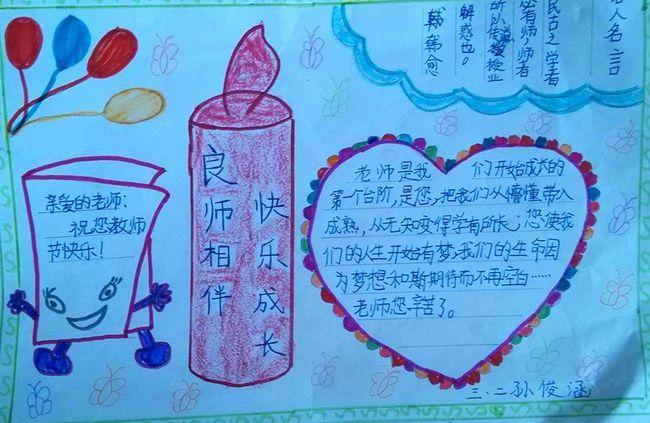 人名言
民古之学者
必有师师者
所以传道授业
解惑也。
韩韩愈
亲爱的老师:
祝您教师
节快乐!
良师相伴
快乐成长
老师是我 们开始成长的
第一个台阶,是您,把我们从懵懂带入
成熟,从无知变得学有所长;您使我
们的人生开始有梦,我们的生命因
为梦想和斯期待而不再空白……
老师您辛苦了。
三.二孙俊涵